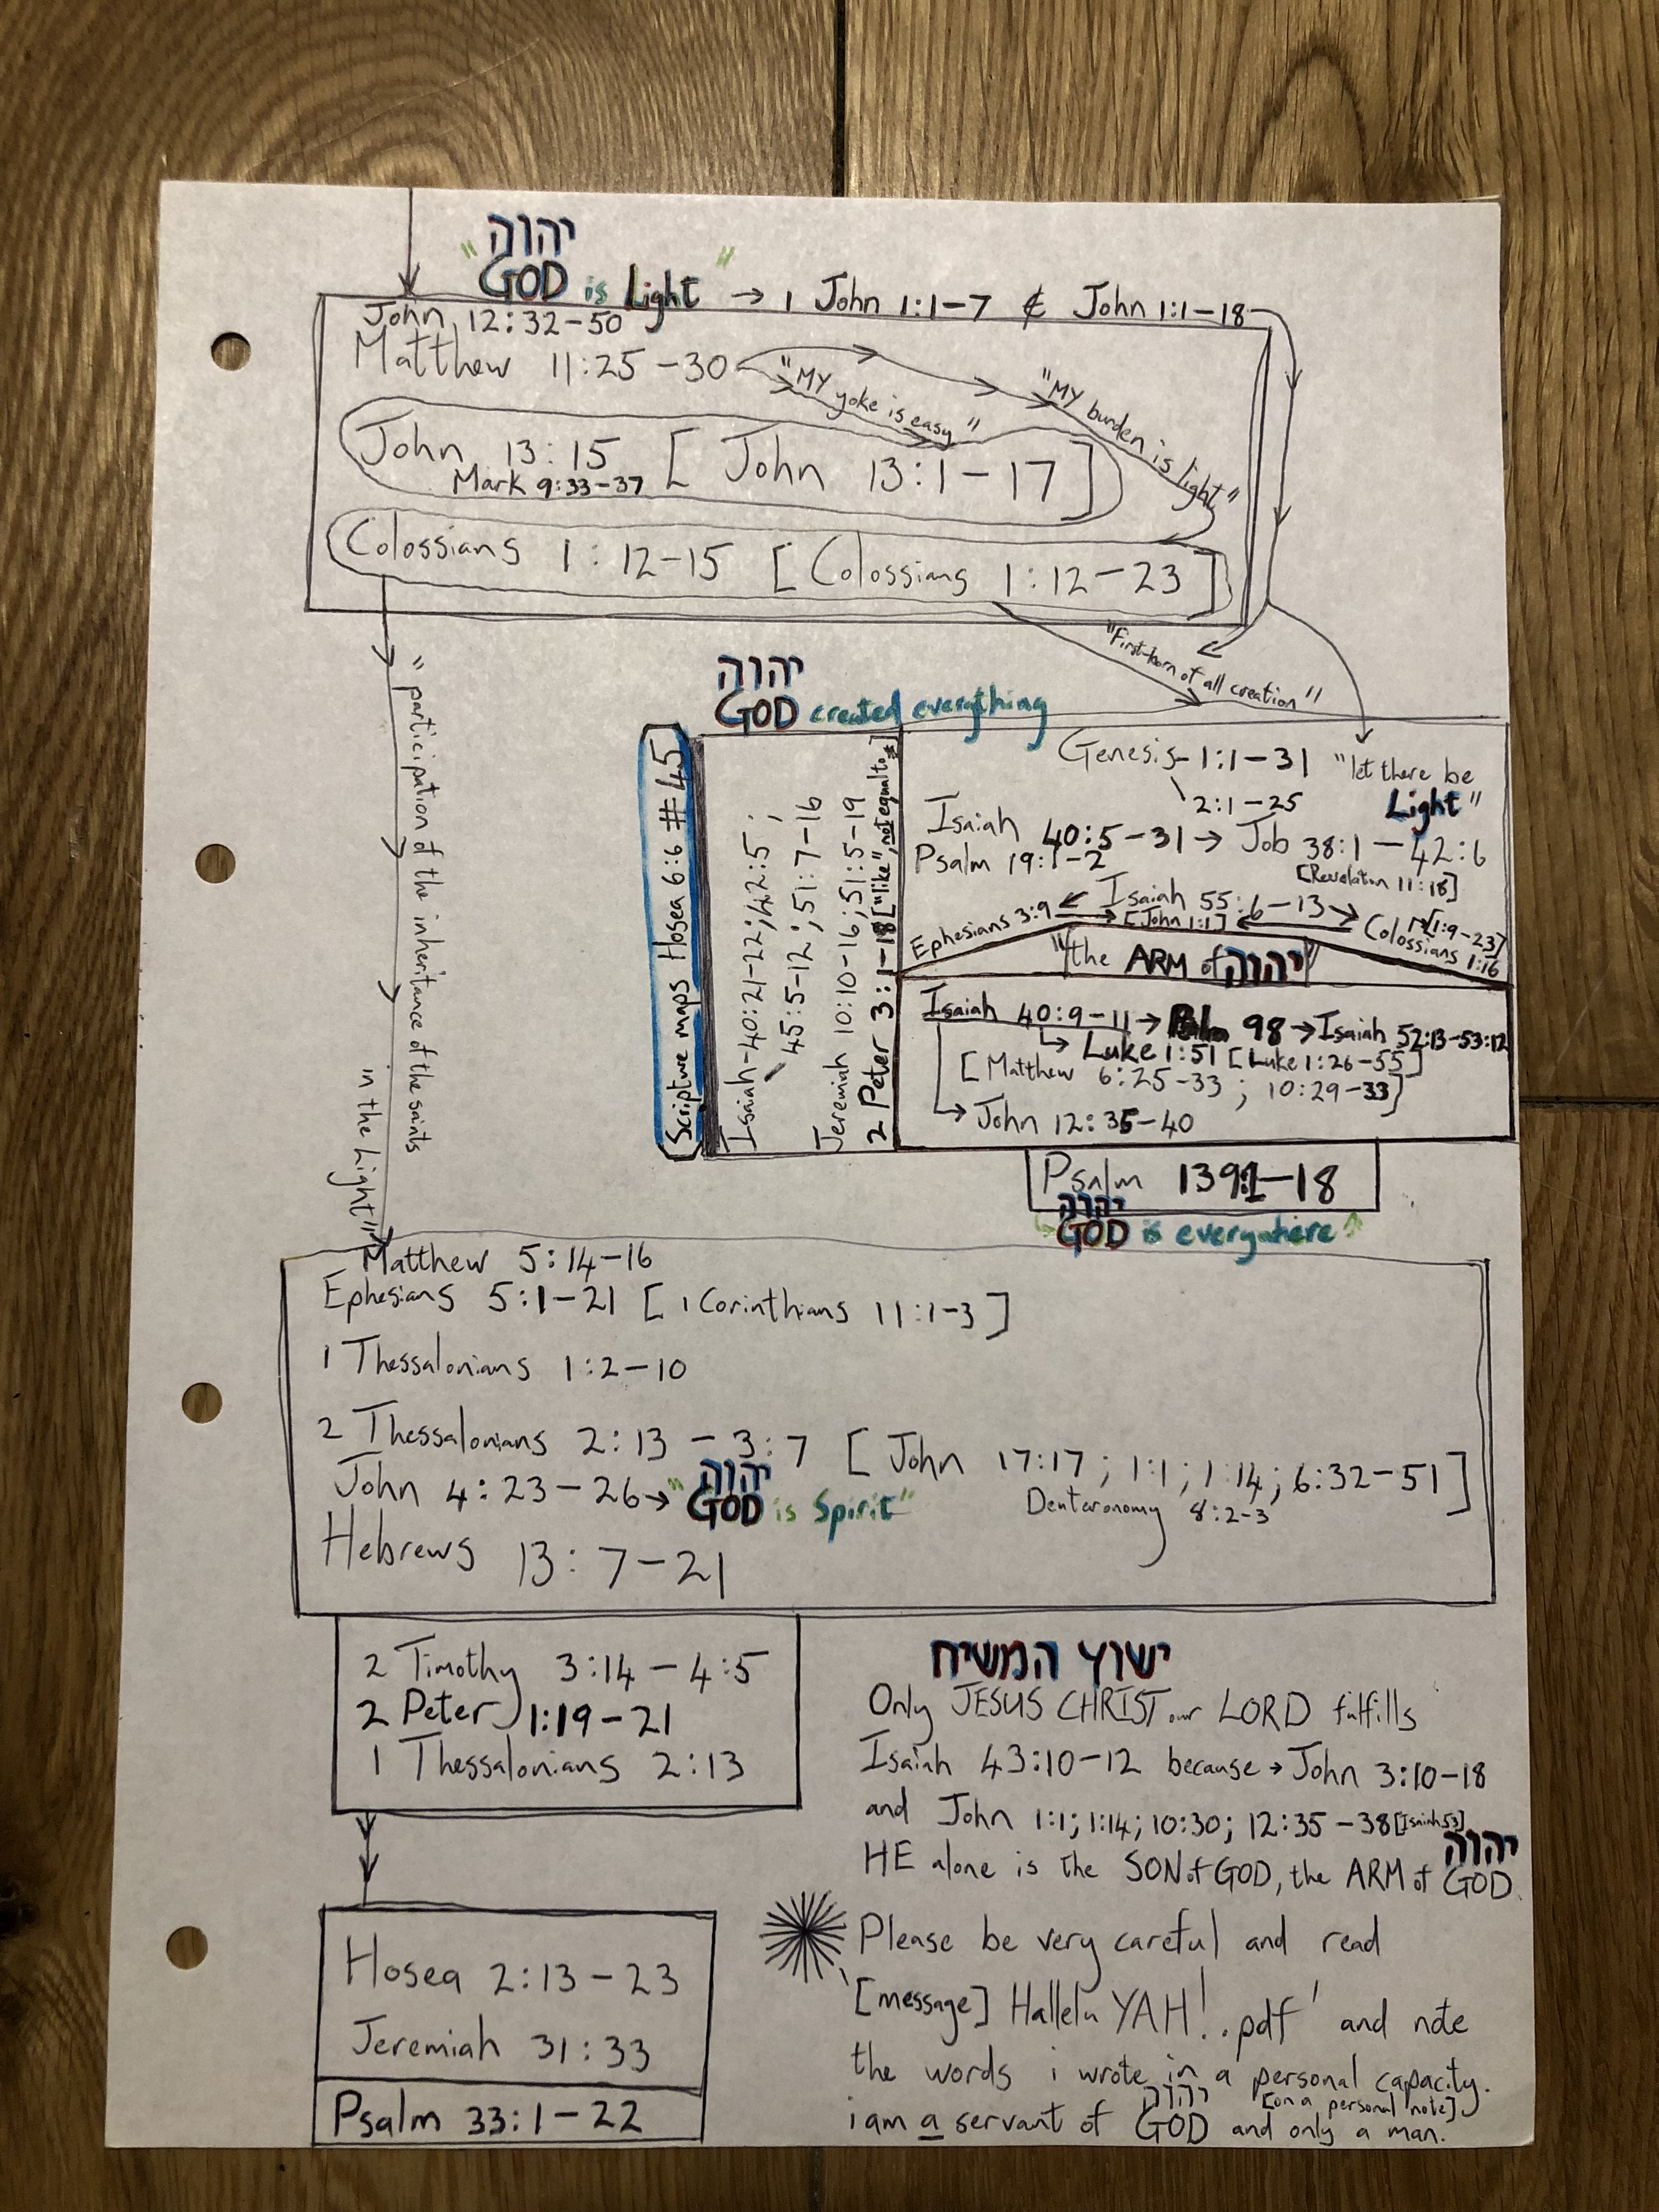 יהוה
"GOD is Light" → 1 John 1:1-7 & John 1:1-18
John 12:32-50
Matthew 11:25-30
"MY yoke is easy"
"MY burden is light"
John 13:15 [John 13:1-17]
Mark 9:33-37
Colossians 1:12-15 [Colossians 1:12-23]
"First-born of all creation"
"participation of the inheritance of the saints
in the Light"
יהוה
GOD created everything
Scripture maps Hosea 6:6 #45
Isaiah-40:21-22;42:5;
45:5-12;51:7-16
Jeremiah 10:10-16;51:5-19
2 Peter 3:1-18["like", not equal to ≠]
Genesis-1:1-31 "let there be
2:1-25 Light"
Isaiah 40:5-31 → Job 38:1-42:6
Psalm 19:1-2
[Revelation 11:18]
Isaiah 55:6-13
Ephesians 3:9 [John 1:1] [1:9-23]
Colossians 1:16
"the ARM of יהוה"
Isaiah 40:9-11 → Psalm 98 → Isaiah 52:13-53:12
Luke 1:51 [Luke 1:26-55]
[Matthew 6:25-33 ; 10:29-33]
John 12:35-40
Psalm 139:1-18
יהוה
GOD is everywhere
Matthew 5:14-16
Ephesians 5:1-21 [1 Corinthians 11:1-3]
1 Thessalonians 1:2-10
2 Thessalonians 2:13-3:7 [John 17:17; 1:1; 1:14; 6:32-51]
Deuteronomy 8:2-3
יהוה
John 4:23-26 → "GOD is Spirit"
Hebrews 13:7-21
2 Timothy 3:14-4:5
2 Peter 1:19-21
1 Thessalonians 2:13
Hosea 2:13-23
Jeremiah 31:33
Psalm 33:1-22
ישוץ המשיח
Only JESUS CHRIST our LORD fulfills
Isaiah 43:10-12 because → John 3:10-18
and John 1:1; 1:14; 10:30; 12:35-38 [Isaiah 53]
יהוה
HE alone is the SON of GOD, the ARM of GOD.
Please be very careful and read
'[message] HalleluYAH!..pdf' and note
the words i wrote in a personal capacity.
יהוה [on a personal note]
i am a servant of GOD and only a man.